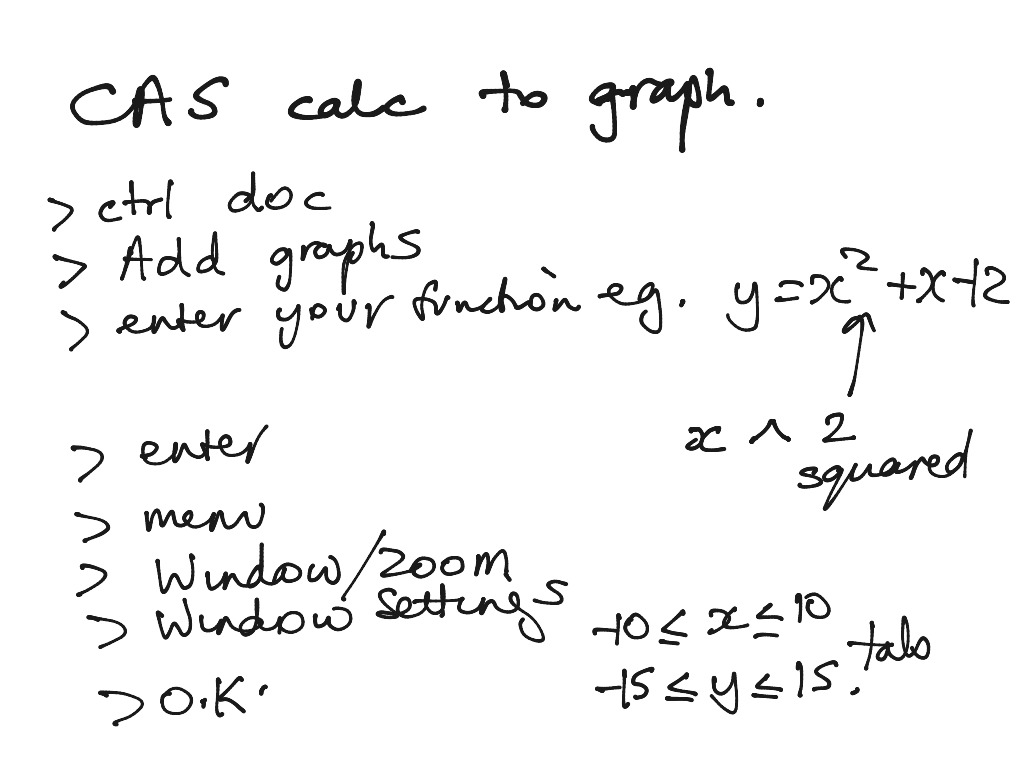 CAS calc to graph.
> ctrl doc
> Add graphs
> enter your function eg. y = x² + x - 12
x ^ 2
squared
> enter
> menu
> Window/zoom
> Window settings
-10 ≤ x ≤ 10
-15 ≤ y ≤ 15. tabs
> O.K.